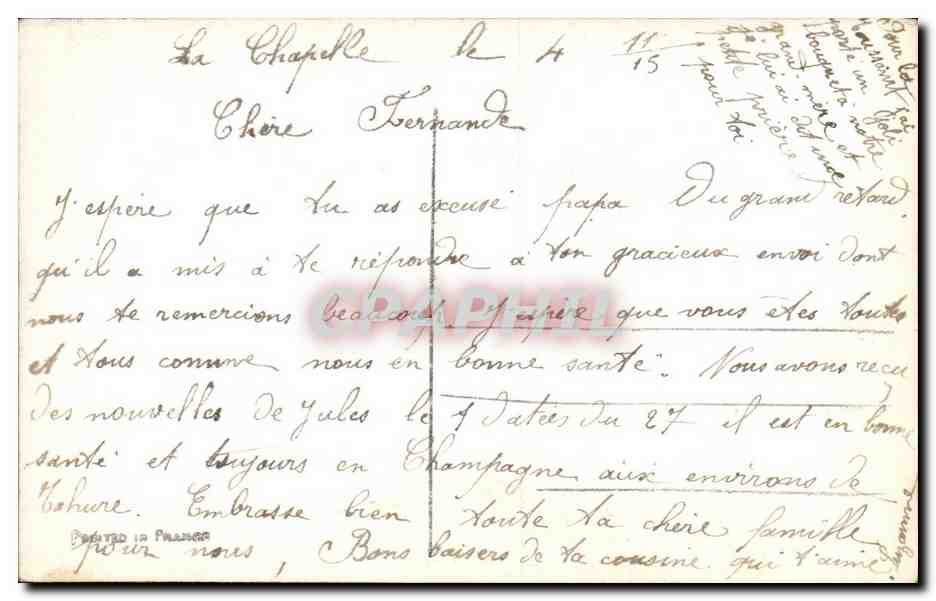 La Chapelle le 4 11/15
Chère Fernande
J'espère que tu as excusé papa Du grand retard
qu'il a mis à te répondre à ton gracieux envoi dont
nous te remercions beaucoup. J'espère que vous êtes toutes
et tous comme nous en bonne santé. Nous avons reçu
des nouvelles de Jules le 1 datées du 27 il est en bonne
santé et toujours en Champagne aux environs de
Tahure. Embrasse bien toute ta chère famille
pour nous, Bons baisers de ta cousine qui t'aime
Pour la
Toussaint j'ai
porté un joli
bouquet à notre
grand'mère et
je lui ai dit une
petite prière
pour toi
PRINTED IN FRANCE
CPAPHIL